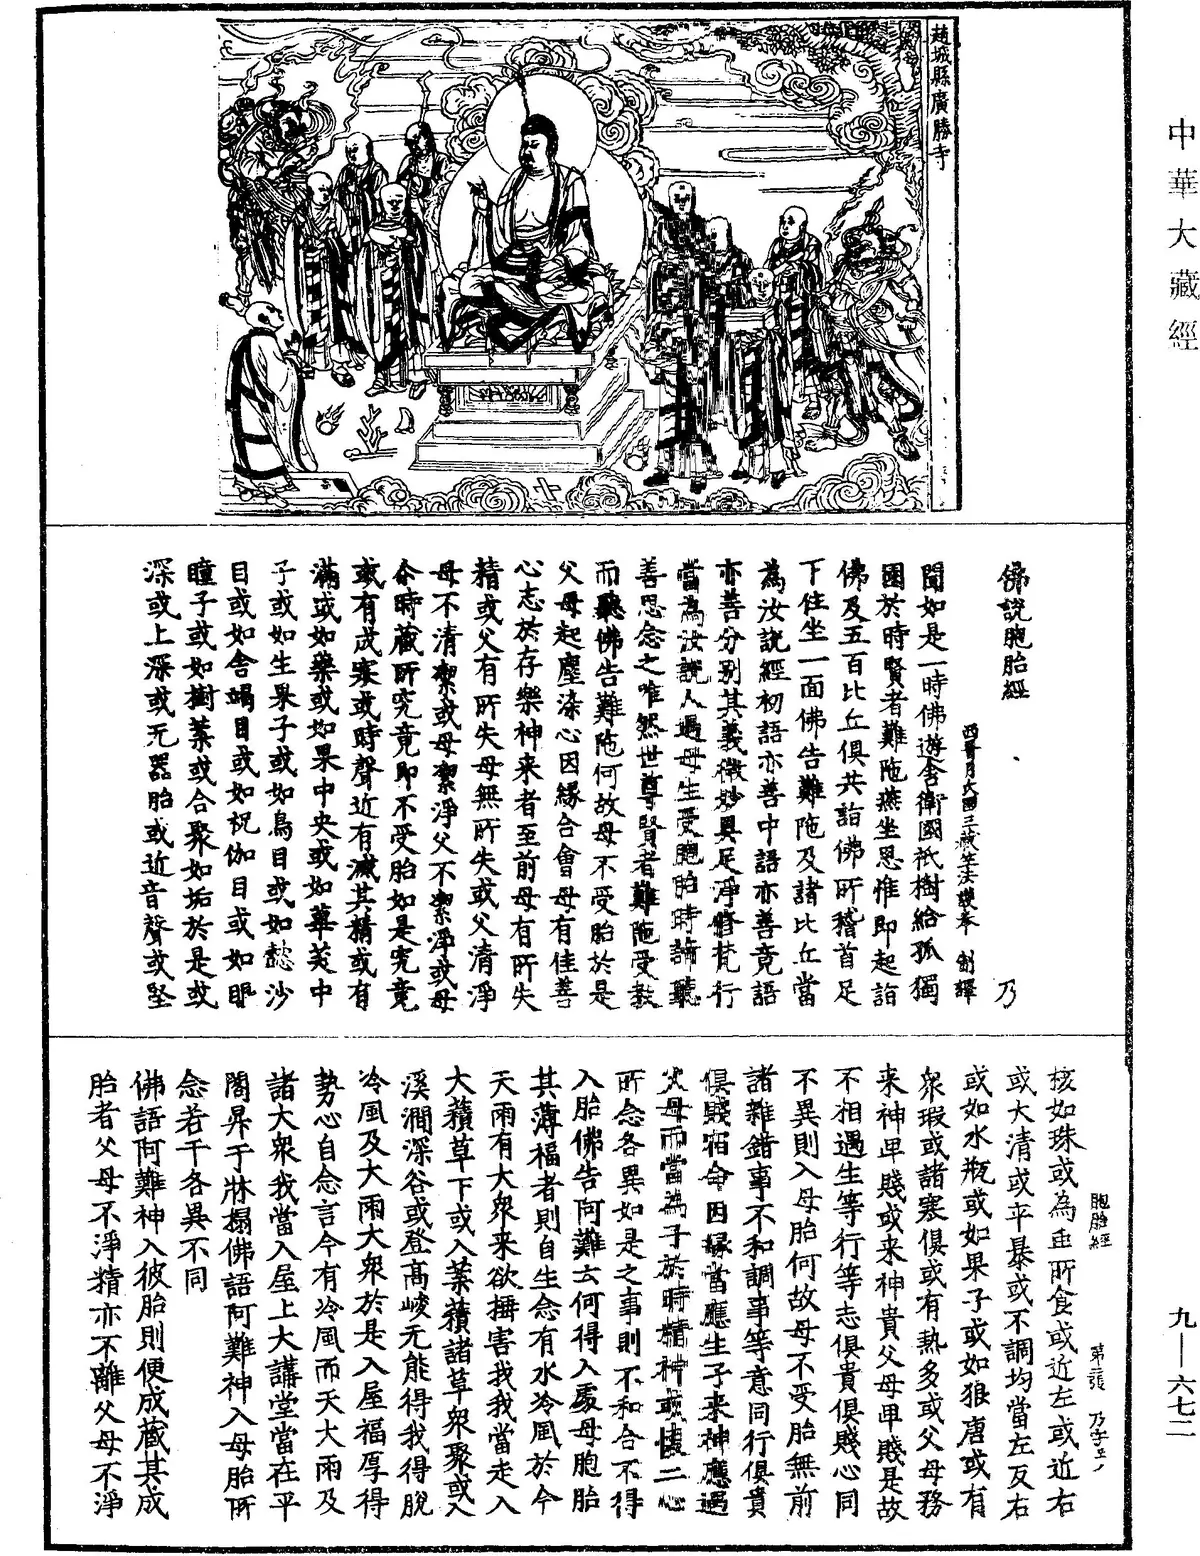 中華大藏經
趙城縣廣勝寺
佛說胞胎經　乃
西晉月氏國三藏竺法護奉　制譯
聞如是一時佛遊舍衛國祇樹給孤獨
園於時賢者難陁燕坐思惟即起詣
佛及五百比丘俱共詣佛所稽首足
下住坐一面佛告難陁及諸比丘當
為汝說經初語亦善中語亦善竟語
亦善分別其義微妙具足淨脩梵行
當為汝說人遇母生受胞胎時諦聽
善思念之唯然世尊賢者難陁受教
而聽佛告難陁何故母不受胎於是
父母起塵染心因緣合會母有佳善
心志於存樂神来者至前母有所失
精或父有所失母無所失或父清淨
母不清潔或母潔淨父不潔淨或母
尒時藏所究竟即不受胎如是究竟
或有成寒或時聲近有滅其精或有
滿或如藥或如果中央或如蓽茇中
子或如生果子或如鳥目或如懿沙
目或如舍竭目或如祝伽目或如眼
瞳子或如樹葉或合聚如垢於是或
深或上深或无器胎或近音聲或堅
核如珠或為虫所食或近左或近右
或大清或卒暴或不調均當左反右
或如水瓶或如果子或如狼唐或有
衆瑕或諸寒俱或有熱多或父母務
来神卑賤或来神貴父母卑賤是故
不相遇生等行等志俱貴俱賤心同
不異則入母胎何故母不受胎無前
諸雜錯事不和調事等意同行俱貴
俱賤宿命因緣當應生子来神應遇
父母而當為子於時精神或懷二心
所念各異如是之事則不和合不得
入胎佛告阿難云何得入處母胞胎
其薄福者則自生念有水冷風於今
天雨有大衆来欲撾害我我當走入
大䕆草下或入葉䕆諸草衆聚或入
溪澗深谷或登高峻无能得我得脫
冷風及大雨大衆於是入屋福厚得
勢心自念言今有冷風而天大雨及
諸大衆我當入屋上大講堂當在平
閣昇于牀榻佛語阿難神入母胎所
念若干各異不同
佛語阿難神入彼胎則便成藏其成
胎者父母不淨精亦不離父母不淨
胞胎經　第二張　乃字
九—六七二